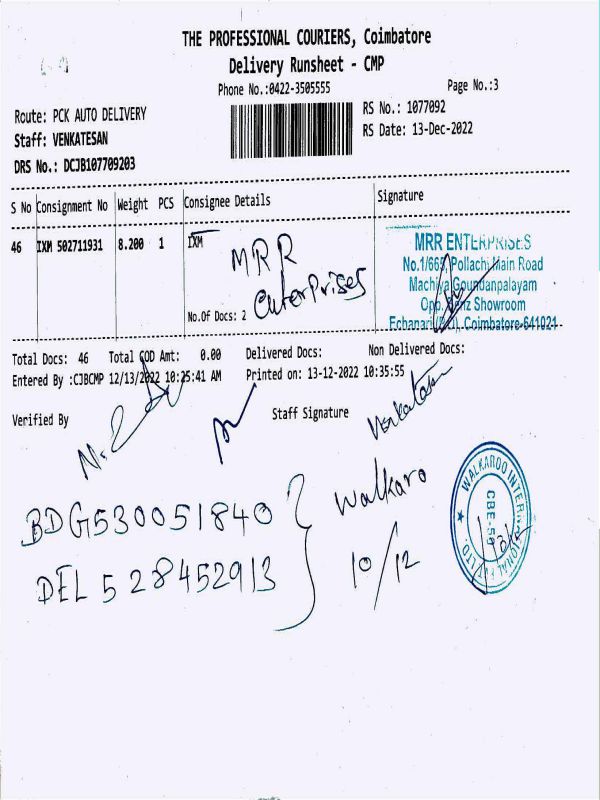 THE PROFESSIONAL COURIERS, Coimbatore
Delivery Runsheet - CMP
Phone No.:0422-3505555
Page No.:3
Route: PCK AUTO DELIVERY
RS No.: 1077092
Staff: VENKATESAN
RS Date: 13-Dec-2022
DRS No.: DCJB107709203
S No Consignment No Weight PCS Consignee Details Signature
46 IXM 502711931 8.200 1 IXM
MRR
Enterprises
No.Of Docs: 2
MRR ENTERPRISES
No.1/665, Pollachi Main Road
Machiya Goundanpalayam
Opp. Benz Showroom
Echanari (P.O), Coimbatore-641021
Total Docs: 46 Total COD Amt: 0.00 Delivered Docs: Non Delivered Docs:
Entered By :CJBCMP 12/13/2022 10:25:41 AM Printed on: 13-12-2022 10:35:55
Verified By Staff Signature
Venkatesan
BDG530051840
DEL 528452913
Walkaro
10/12
WALKAROO INTERNATIONAL P LTD.
CBE-50